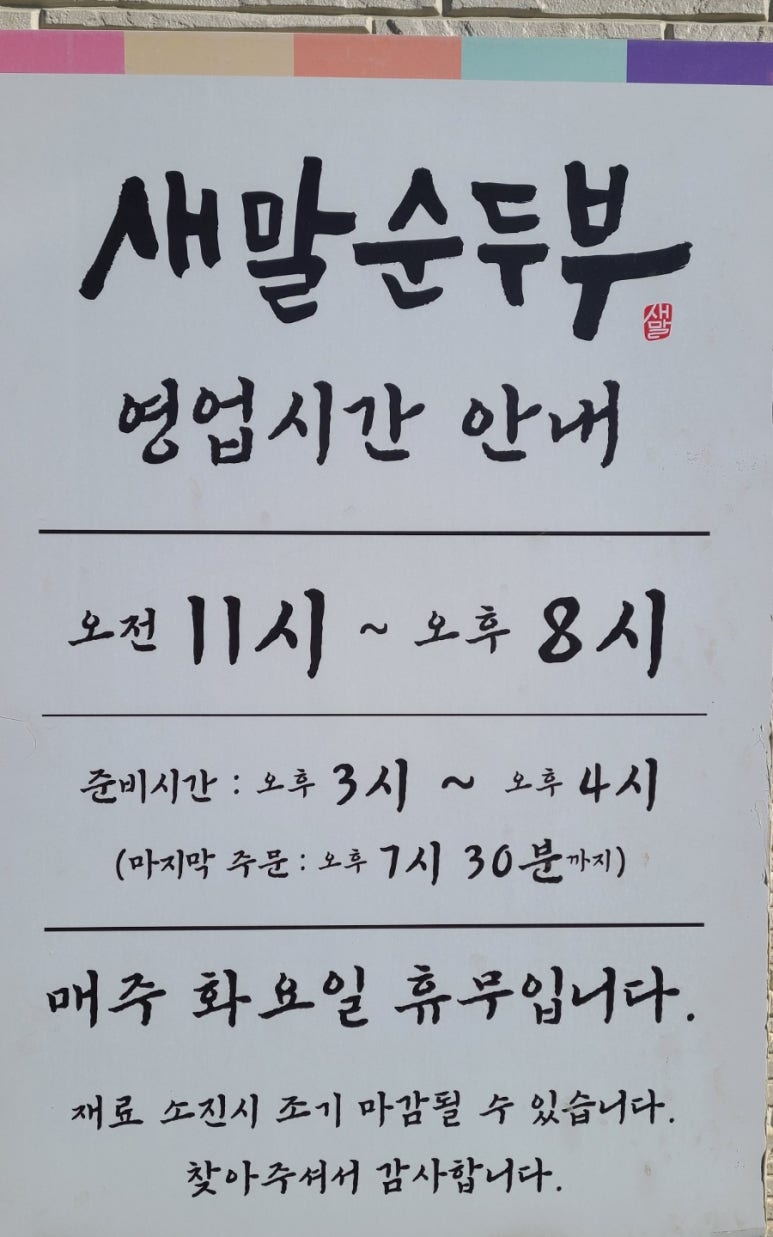 새말순두부
새말
영업시간 안내
오전 11시 ~ 오후 8시
준비시간 : 오후 3시 ~ 오후 4시
(마지막 주문 : 오후 7시 30분까지)
매주 화요일 휴무입니다.
재료 소진시 조기 마감될 수 있습니다.
찾아주셔서 감사합니다.